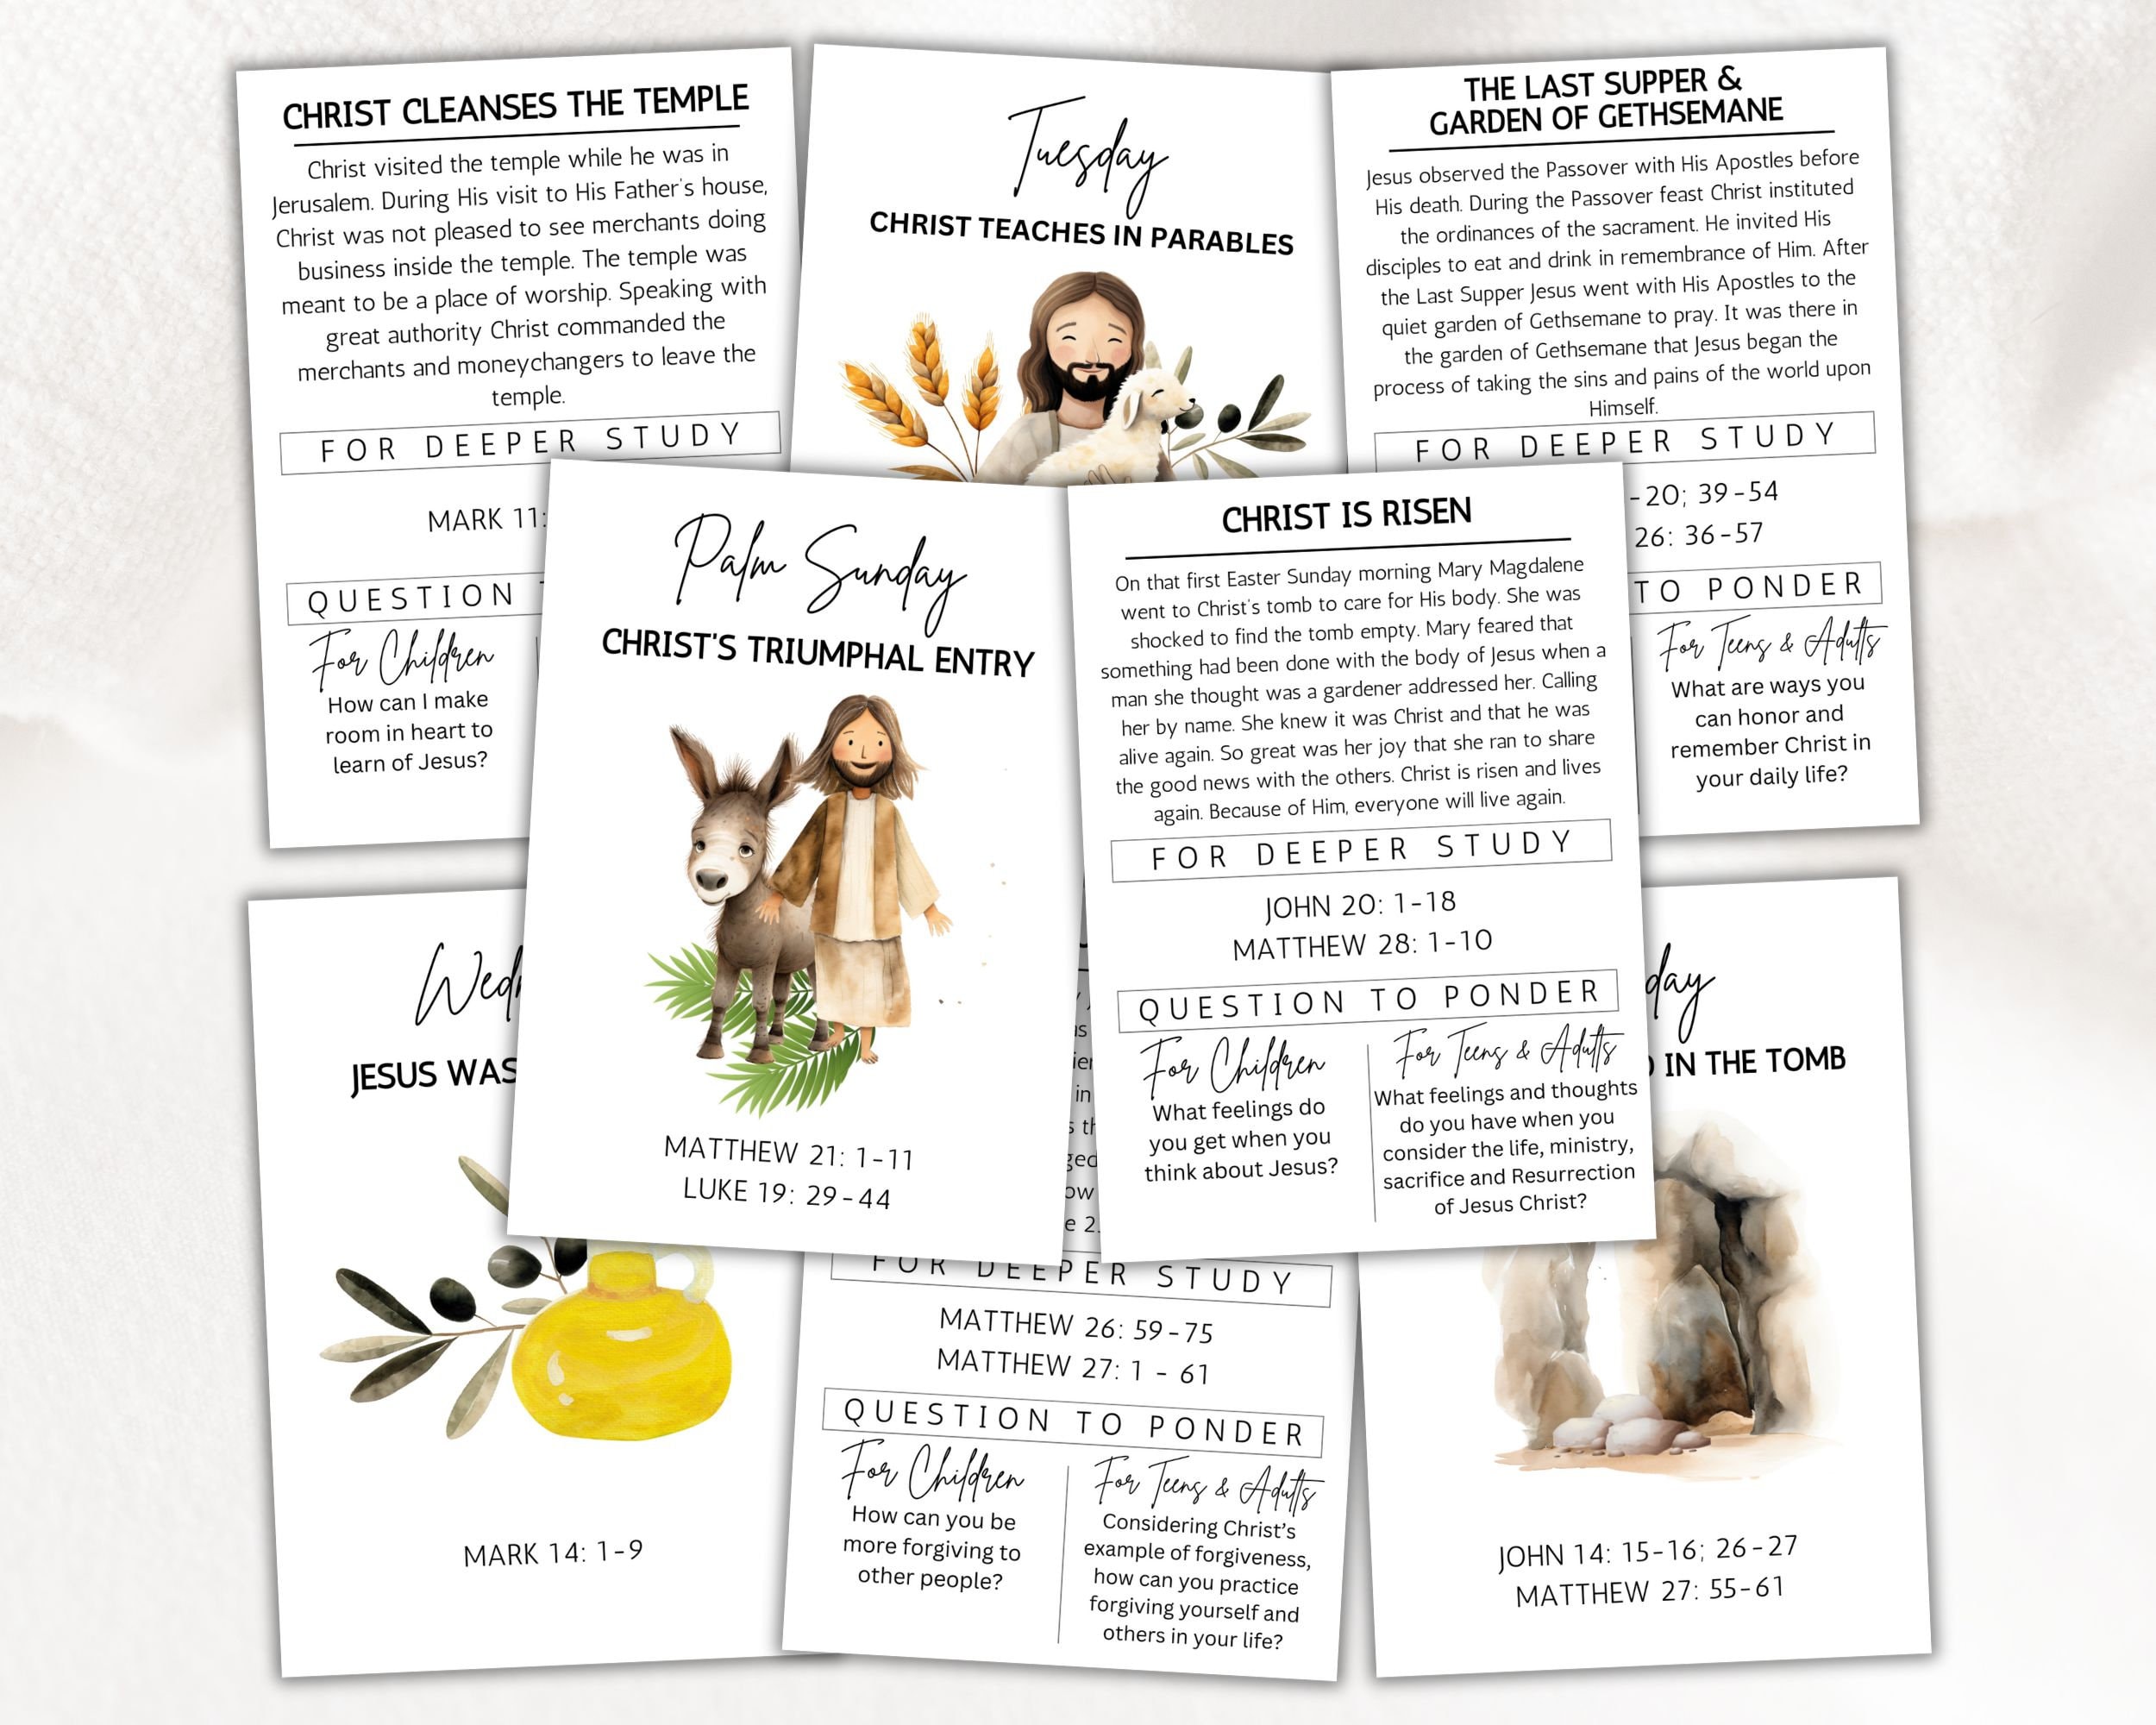 CHRIST CLEANSES THE TEMPLE
Christ visited the temple while he was in
Jerusalem. During His visit to His Father's house,
Christ was not pleased to see merchants doing
business inside the temple. The temple was
meant to be a place of worship. Speaking with
great authority Christ commanded the
merchants and moneychangers to leave the
temple.
FOR DEEPER STUDY
MARK 11:
QUESTION
For Children
How can I make
room in heart to
learn of Jesus?
Tuesday
CHRIST TEACHES IN PARABLES
THE LAST SUPPER &
GARDEN OF GETHSEMANE
Jesus observed the Passover with His Apostles before
His death. During the Passover feast Christ instituted
the ordinances of the sacrament. He invited His
disciples to eat and drink in remembrance of Him. After
the Last Supper Jesus went with His Apostles to the
quiet garden of Gethsemane to pray. It was there in
the garden of Gethsemane that Jesus began the
process of taking the sins and pains of the world upon
Himself.
FOR DEEPER STUDY
-20; 39-54
26: 36-57
TO PONDER
For Teens & Adults
What are ways you
can honor and
remember Christ in
your daily life?
Palm Sunday
CHRIST'S TRIUMPHAL ENTRY
MATTHEW 21: 1-11
LUKE 19: 29-44
CHRIST IS RISEN
On that first Easter Sunday morning Mary Magdalene
went to Christ's tomb to care for His body. She was
shocked to find the tomb empty. Mary feared that
something had been done with the body of Jesus when a
man she thought was a gardener addressed her. Calling
her by name. She knew it was Christ and that he was
alive again. So great was her joy that she ran to share
the good news with the others. Christ is risen and lives
again. Because of Him, everyone will live again.
FOR DEEPER STUDY
JOHN 20: 1-18
MATTHEW 28: 1-10
QUESTION TO PONDER
For Children
What feelings do
you get when you
think about Jesus?
For Teens & Adults
What feelings and thoughts
do you have when you
consider the life, ministry,
sacrifice and Resurrection
of Jesus Christ?
JESUS WAS
MARK 14: 1-9
FOR DEEPER STUDY
MATTHEW 26: 59-75
MATTHEW 27: 1 - 61
QUESTION TO PONDER
For Children
How can you be
more forgiving to
other people?
For Teens & Adults
Considering Christ's
example of forgiveness,
how can you practice
forgiving yourself and
others in your life?
day
IN THE TOMB
JOHN 14: 15-16; 26-27
MATTHEW 27: 55-61